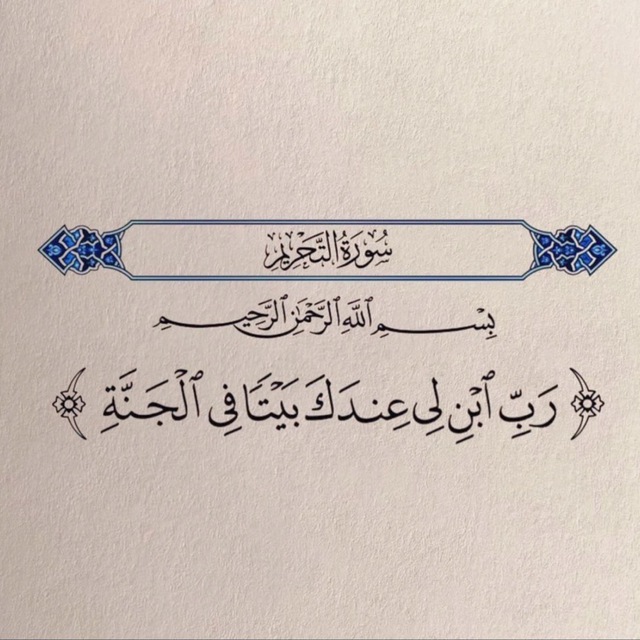 سُورَةُ التَّحْرِيمِ
بِسْمِ ٱللَّهِ ٱلرَّحْمَٰنِ ٱلرَّحِيمِ
﴿رَبِّ ٱبْنِ لِى عِندَكَ بَيْتًا فِى ٱلْجَنَّةِ﴾